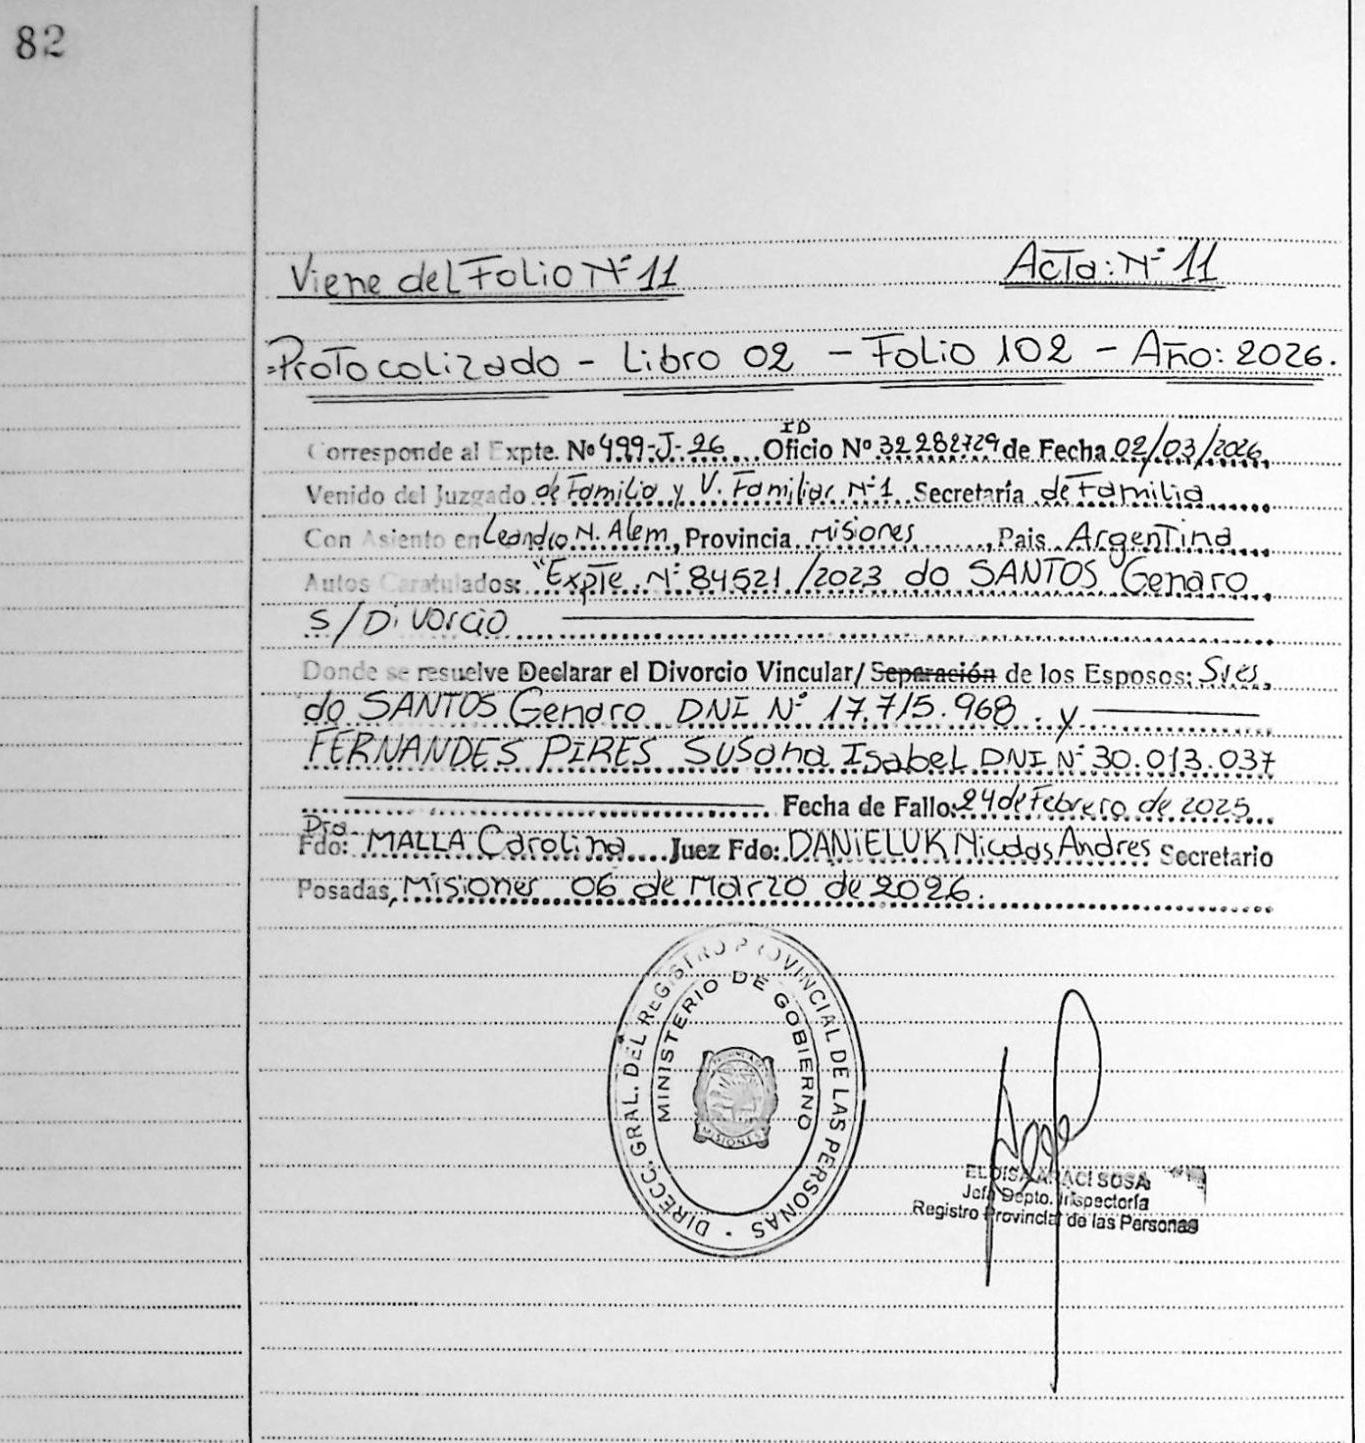 82
Viene del Folio Nº 11
Acta: Nº 11
Protocolizado - Libro 02 - Folio 102 - Año: 2026.
ID
Corresponde al Expte. Nº 499-J-26 Oficio Nº 32282729 de Fecha 02/03/2026
Venido del Juzgado de Familia y V. Familiar Nº 1 Secretaría de Familia
Con Asiento en Leandro N. Alem, Provincia Misiones, Pais Argentina
Autos Caratulados: "Expte. Nº 84521/2023 do SANTOS Genaro
s/Divorcio
Donde se resuelve Declarar el Divorcio Vincular/Separación de los Esposos: Sres.
do SANTOS Genaro DNI Nº 17.715.968. y
FERNANDES PIRES Susana Isabel DNI Nº 30.013.037
Fecha de Fallo: 24 de Febrero de 2025
Dra.
Fdo: MALLA Carolina Juez Fdo: DANIELUK Nicolas Andres Secretario
Posadas, Misiones 06 de Marzo de 2026.
DIRECC. GRAL. DEL REGISTRO PROVINCIAL DE LAS PERSONAS
MINISTERIO DE GOBIERNO
MISIONES
ELOISA ARACI SOSA
Jefa Depto. Inspectoría
Registro Provincial de las Personas